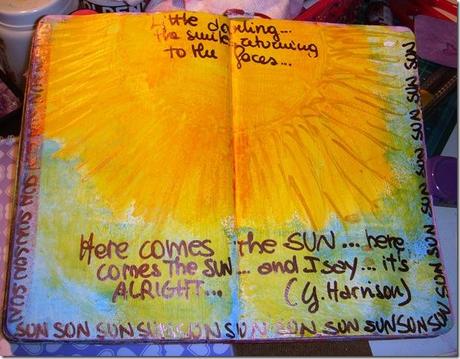 Little darling...
the smile returning
to the faces...
Here comes the SUN... here
comes the SUN... and I say... it's
ALRIGHT...
(G. Harrison)
SUN SUN SUN SUN SUN SUN SUN SUN SUN SUN SUN
SUN SUN SUN SUN SUN SUN SUN SUN
SUN SUN SUN SUN SUN SUN